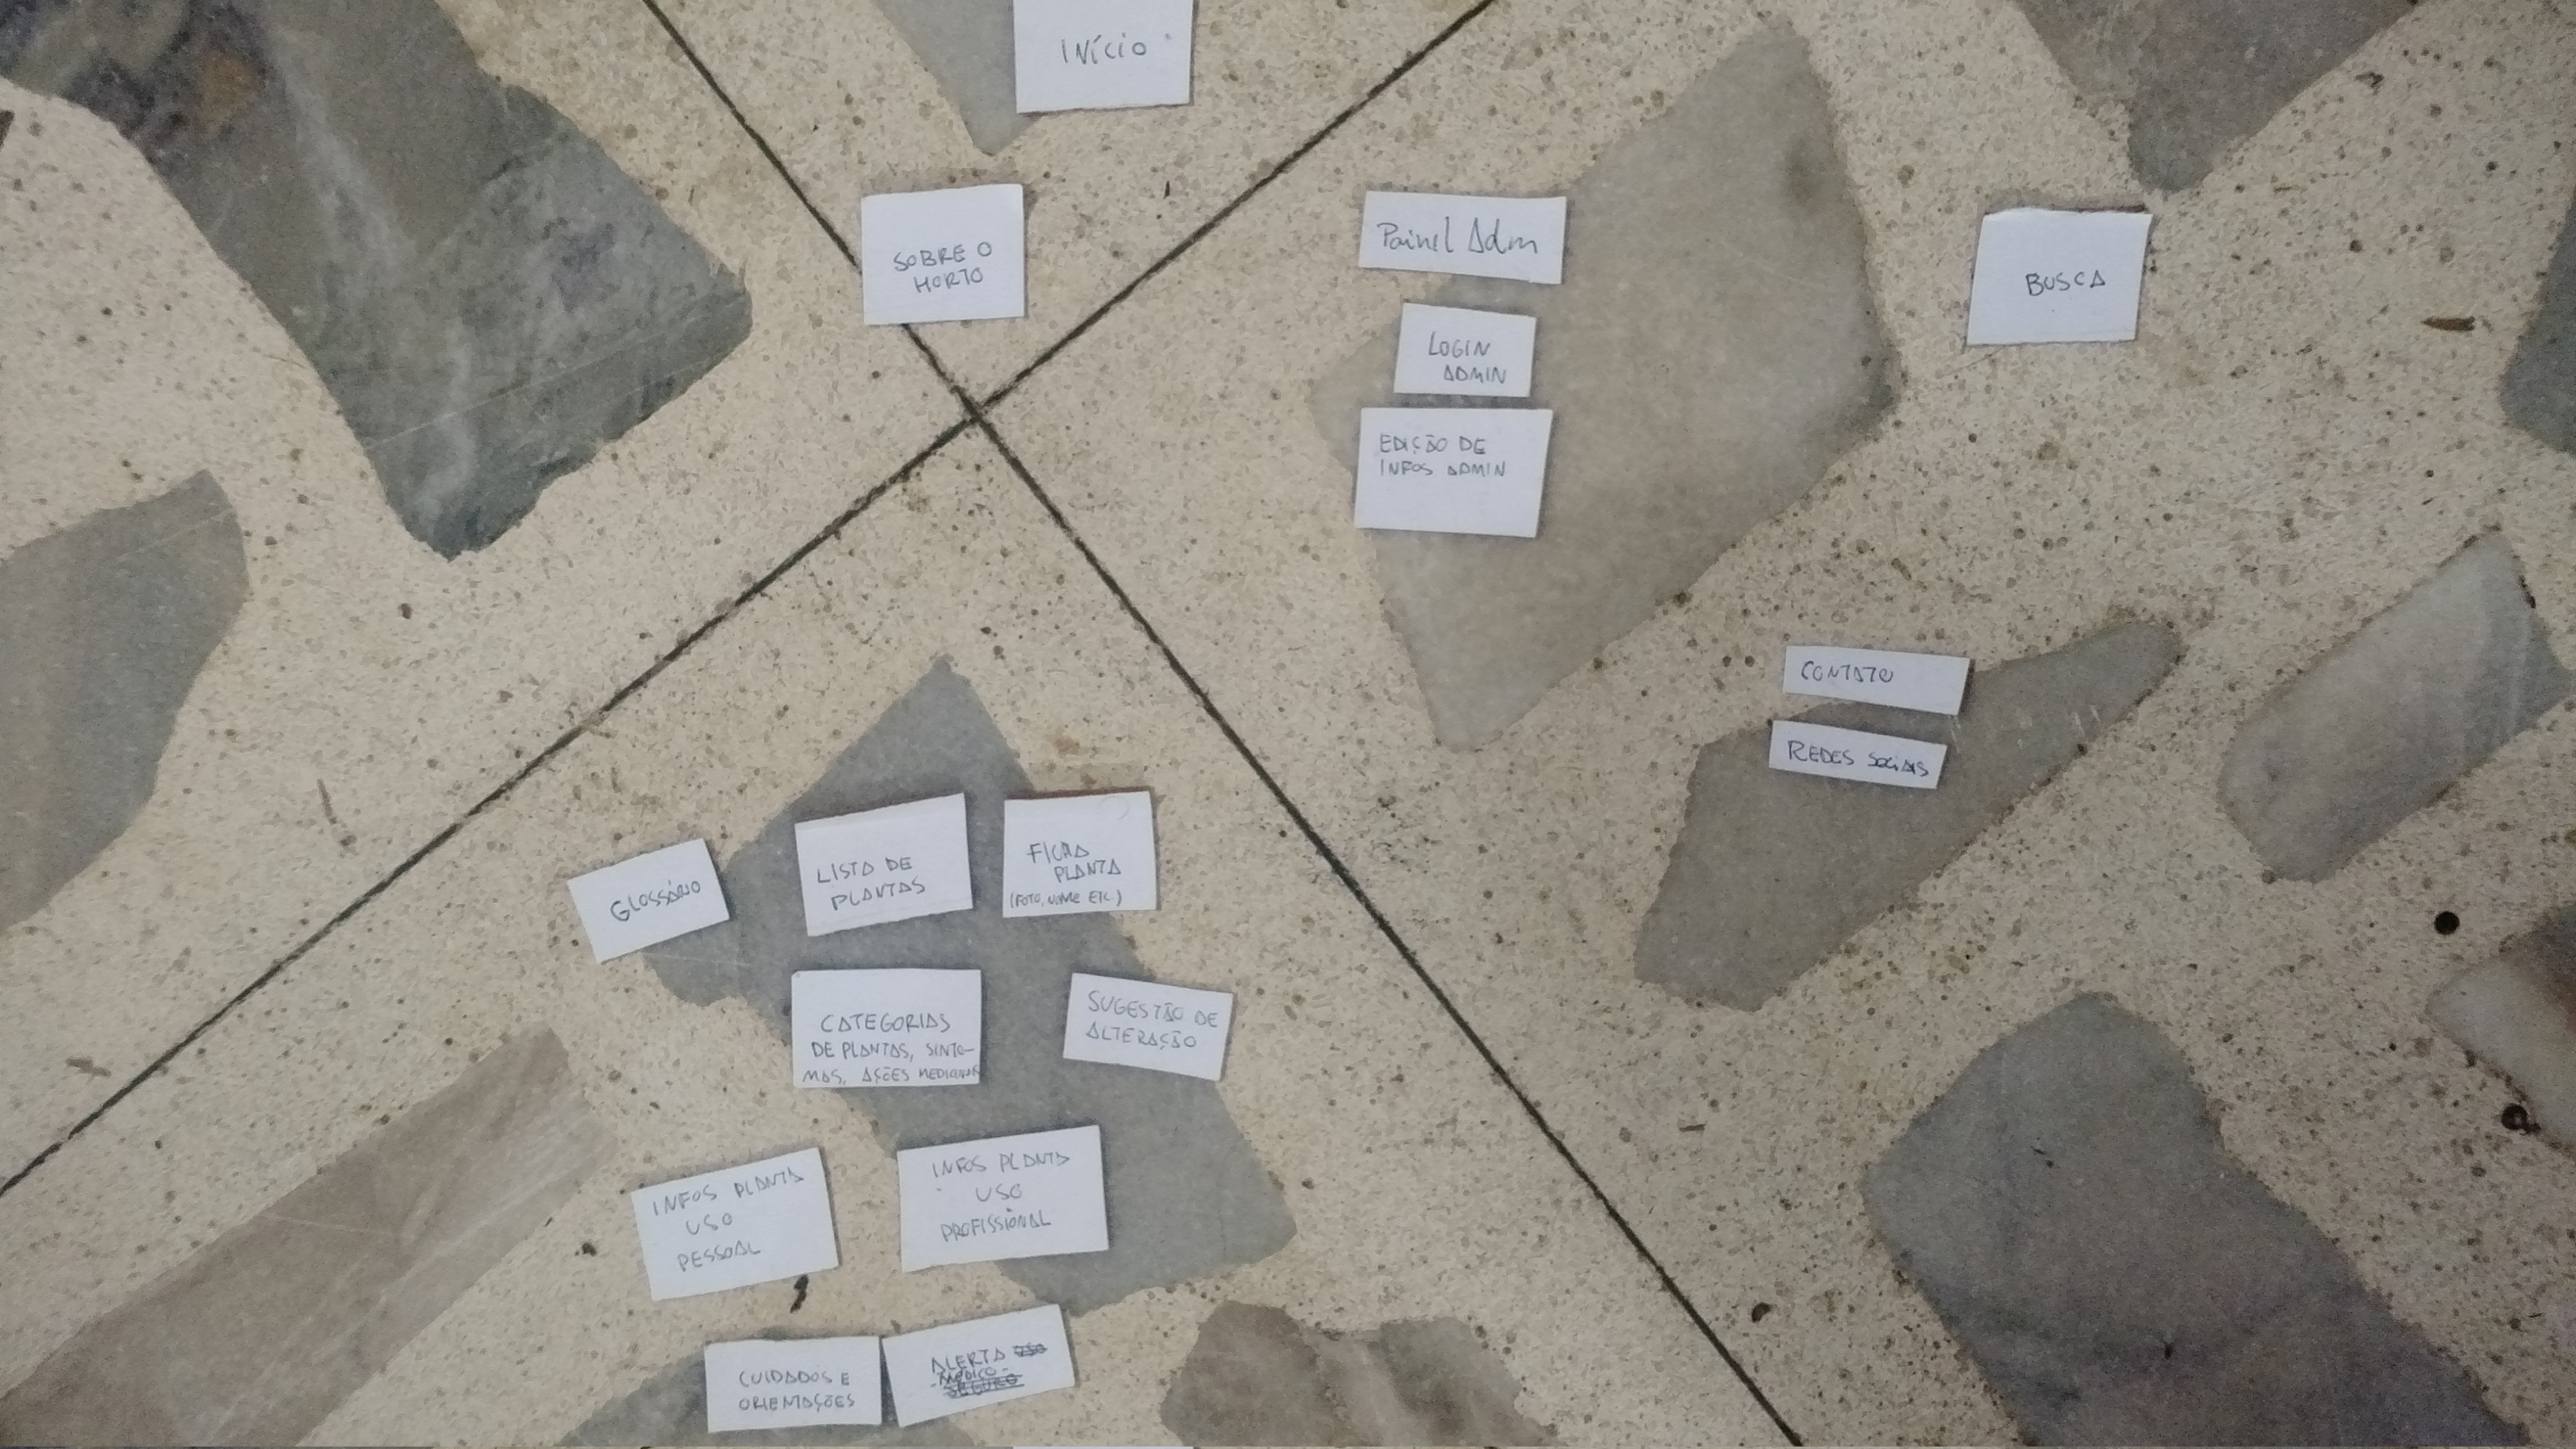 INÍCIO
SOBRE O
HORTO
Painel Adm
LOGIN
ADMIN
EDIÇÃO DE
INFOS ADMIN
BUSCA
CONTATO
REDES SOCIAIS
GLOSSÁRIO
LISTA DE
PLANTAS
FICHA
PLANTA
(FOTO, NOME ETC.)
CATEGORIAS
DE PLANTAS, SINTO-
MAS, AÇÕES MEDICINAIS
SUGESTÃO DE
ALTERAÇÃO
INFOS PLANTA
USO
PESSOAL
INFOS PLANTA
USO
PROFISSIONAL
CUIDADOS E
ORIENTAÇÕES
ALERTA
-MÉDICO-